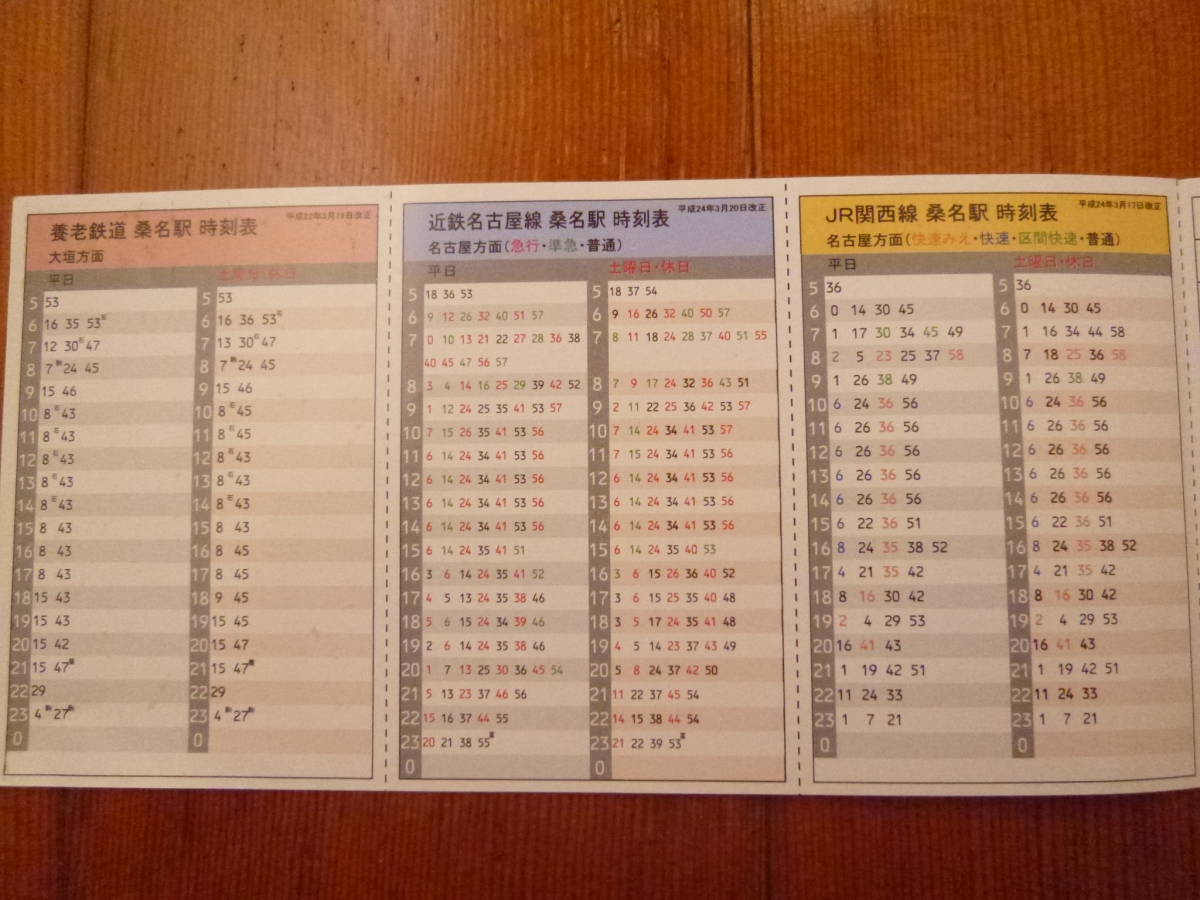 養老鉄道 桑名駅 時刻表
平成22年3月19日改正
大垣方面
平日 土曜日・休日
5 53 5 53
6 16 35 53 6 16 36 53
7 12 30 47 7 13 30 47
8 7 24 45 8 7 24 45
9 15 46 9 15 46
10 8 43 10 8 45
11 8 43 11 8 45
12 8 43 12 8 43
13 8 43 13 8 43
14 8 43 14 8 43
15 8 43 15 8 43
16 8 43 16 8 45
17 8 43 17 8 45
18 15 43 18 9 45
19 15 43 19 15 45
20 15 42 20 15 47
21 15 47 21 15 47
22 29 22 29
23 4 27 23 4 27
0 0
近鉄名古屋線 桑名駅 時刻表
平成24年3月20日改正
名古屋方面(急行・準急・普通)
平日 土曜日・休日
5 18 36 53 5 18 37 54
6 9 12 26 32 40 51 57 6 9 16 26 32 40 50 57
7 0 10 13 21 22 27 28 36 38 7 8 11 18 24 28 37 40 51 55
40 45 47 56 57
8 3 4 14 16 25 29 39 42 52 8 7 9 17 24 32 36 43 51
9 1 12 24 25 35 41 53 57 9 2 11 22 25 36 42 53 57
10 7 15 26 35 41 53 56 10 7 14 24 34 41 53 57
11 6 14 24 34 41 53 56 11 7 15 24 34 41 53 56
12 6 14 24 34 41 53 56 12 6 14 24 34 41 53 56
13 6 14 24 34 41 53 56 13 6 14 24 34 41 53 56
14 6 14 24 34 41 53 56 14 6 14 24 34 41 53 56
15 6 14 24 35 41 51 15 6 14 24 35 40 53
16 3 6 14 24 35 41 52 16 3 6 15 26 36 40 52
17 4 5 13 24 35 38 46 17 3 6 15 25 35 40 48
18 5 6 15 24 34 39 46 18 3 5 17 24 35 41 48
19 2 6 14 24 35 38 46 19 4 5 14 23 37 43 49
20 1 7 13 25 30 36 45 54 20 5 8 24 37 42 50
21 5 13 23 37 46 56 21 11 22 37 45 54
22 15 16 37 44 55 22 14 15 38 44 54
23 20 21 38 55 23 21 22 39 53
0 0
JR関西線 桑名駅 時刻表
平成24年3月17日改正
名古屋方面(快速みえ・快速・区間快速・普通)
平日 土曜日・休日
5 36 5 36
6 0 14 30 45 6 0 14 30 45
7 1 17 30 34 45 49 7 1 16 34 44 58
8 2 5 23 25 37 58 8 7 18 25 36 58
9 1 26 38 49 9 1 26 38 49
10 6 24 36 56 10 6 24 36 56
11 6 26 36 56 11 6 26 36 56
12 6 26 36 56 12 6 26 36 56
13 6 26 36 56 13 6 26 36 56
14 6 26 36 56 14 6 26 36 56
15 6 22 36 51 15 6 22 36 51
16 8 24 35 38 52 16 8 24 35 38 52
17 4 21 35 42 17 4 21 35 42
18 8 16 30 42 18 8 16 30 42
19 2 4 29 53 19 2 4 29 53
20 16 41 43 20 16 41 43
21 1 19 42 51 21 1 19 42 51
22 11 24 33 22 11 24 33
23 1 7 21 23 1 7 21
0 0